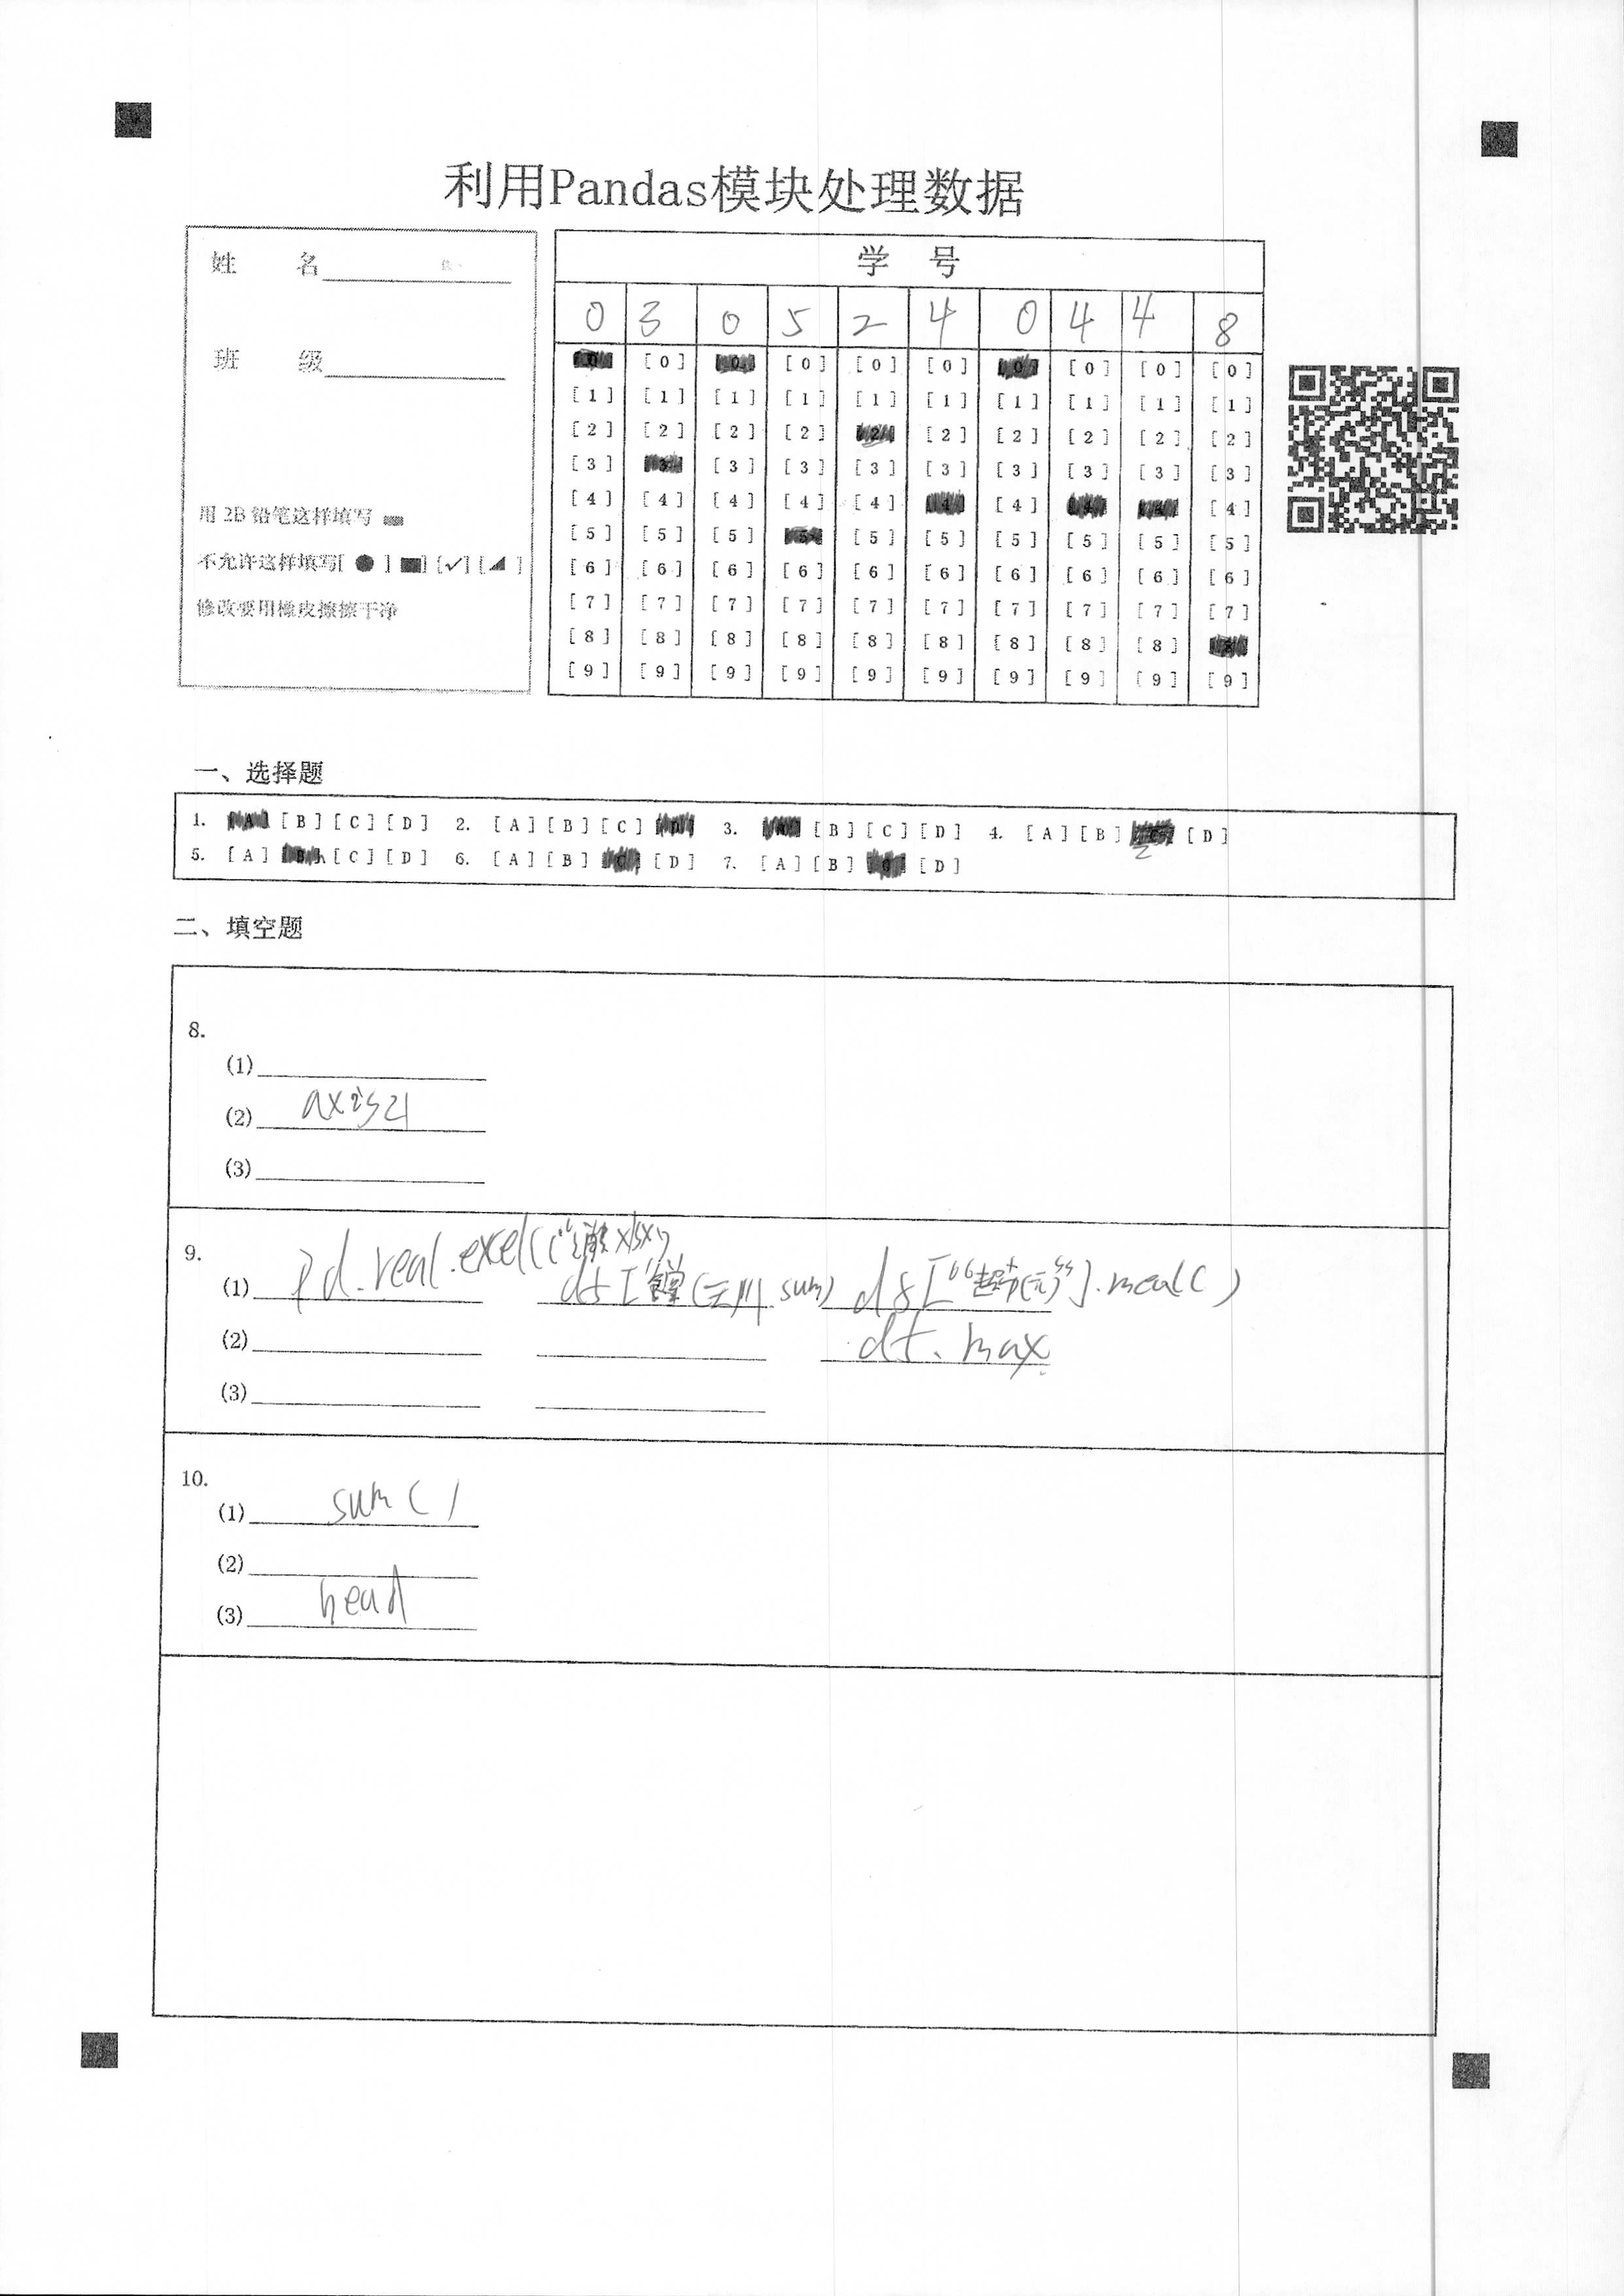 利用Pandas模块处理数据
姓 名
班 级
用 2B 铅笔这样填写
不允许这样填写[ ● ] [■] [✓] [◢ ]
修改要用橡皮擦擦干净
学 号
0 3 0 5 2 4 0 4 4 8
[0] [0] [0] [0] [0] [0] [0] [0] [0] [0]
[1] [1] [1] [1] [1] [1] [1] [1] [1] [1]
[2] [2] [2] [2] [2] [2] [2] [2] [2] [2]
[3] [3] [3] [3] [3] [3] [3] [3] [3] [3]
[4] [4] [4] [4] [4] [4] [4] [4] [4] [4]
[5] [5] [5] [5] [5] [5] [5] [5] [5] [5]
[6] [6] [6] [6] [6] [6] [6] [6] [6] [6]
[7] [7] [7] [7] [7] [7] [7] [7] [7] [7]
[8] [8] [8] [8] [8] [8] [8] [8] [8] [8]
[9] [9] [9] [9] [9] [9] [9] [9] [9] [9]
一、选择题
1. [A] [B] [C] [D] 2. [A] [B] [C] [D] 3. [A] [B] [C] [D] 4. [A] [B] [C] [D]
5. [A] [B] [C] [D] 6. [A] [B] [C] [D] 7. [A] [B] [C] [D]
二、填空题
8.
(1)
(2) axis=1
(3)
9.
(1) pd.real.excel(
(2) df. max
(3)
10.
(1) sum( )
(2)
(3) head